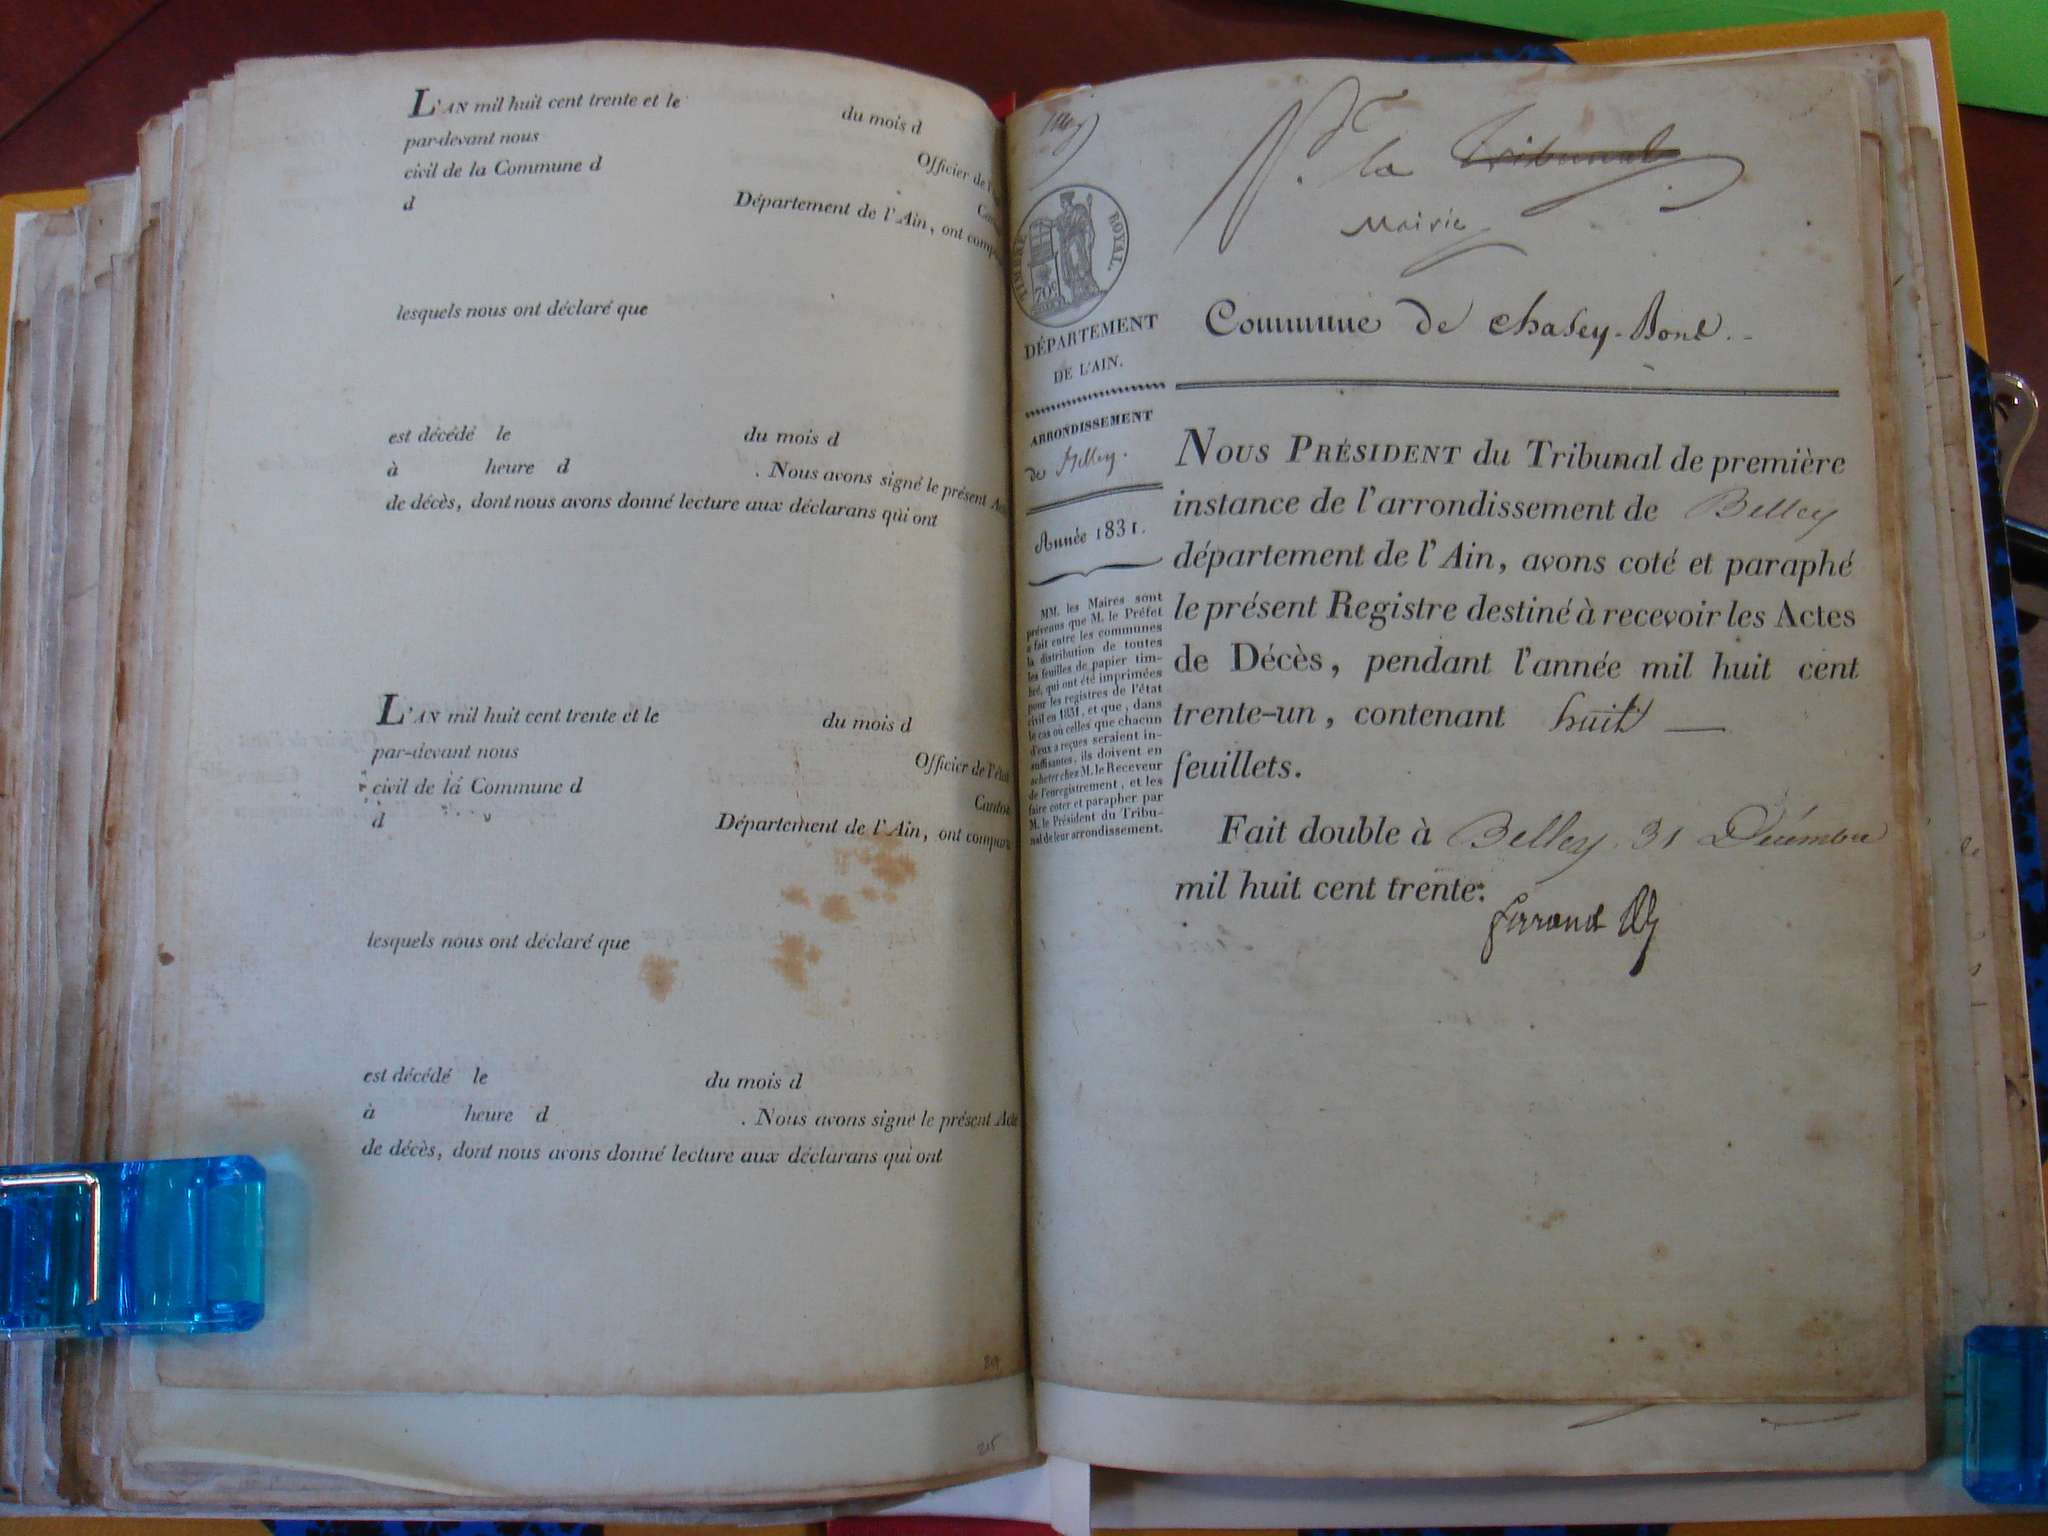 L'AN mil huit cent trente et le du mois d
par-devant nous Officier de l'é
civil de la Commune d Can
d Département de l'Ain, ont compa
lesquels nous ont déclaré que
est décédé le du mois d
à heure d . Nous avons signé le présent Ac
de décès, dont nous avons donné lecture aux déclarans qui ont
L'AN mil huit cent trente et le du mois d
par-devant nous Officier de l'état
civil de la Commune d Canton
d Département de l'Ain, ont comparu
lesquels nous ont déclaré que
est décédé le du mois d
à heure d . Nous avons signé le présent Acte
de décès, dont nous avons donné lecture aux déclarans qui ont
215
la Tribunal
Mairie
TIMBRE ROYAL.
70c
DÉPARTEMENT
DE L'AIN.
ARRONDISSEMENT
de Belley.
Année 1831.
MM. les Maires sont
prévenus que M. le Préfet
a fait entre les communes
la distribution de toutes
les feuilles de papier tim-
bré, qui ont été imprimées
pour les registres de l'état
civil en 1831, et que, dans
le cas où celles que chacun
d'eux a reçues seraient in-
suffisantes, ils doivent en
acheter chez M. le Receveur
de l'enregistrement, et les
faire coter et parapher par
M. le Président du Tribu-
nal de leur arrondissement.
Commune de Chasey-Bons
NOUS PRÉSIDENT du Tribunal de première
instance de l'arrondissement de Belley
département de l'Ain, avons coté et paraphé
le présent Registre destiné à recevoir les Actes
de Décès, pendant l'année mil huit cent
trente-un, contenant huit
feuillets.
Fait double à Belley 31 Décembre
mil huit cent trente.